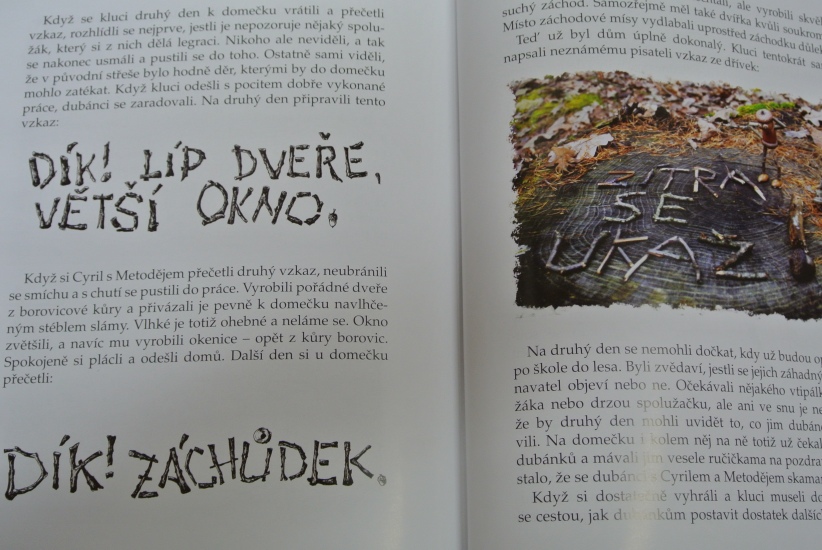 Když se kluci druhý den k domečku vrátili a přečetli
vzkaz, rozhlídli se nejprve, jestli je nepozoruje nějaký spolu-
žák, který si z nich dělá legraci. Nikoho ale neviděli, a tak
se nakonec usmáli a pustili se do toho. Ostatně sami viděli,
že v původní střeše bylo hodně děr, kterými by do domečku
mohlo zatékat. Když kluci odešli s pocitem dobře vykonané
práce, dubánci se zaradovali. Na druhý den připravili tento
vzkaz:
DÍK! LÍP DVEŘE,
VĚTŠÍ OKNO.
Když si Cyril s Metodějem přečetli druhý vzkaz, neubránili
se smíchu a s chutí se pustili do práce. Vyrobili pořádné dveře
z borovicové kůry a přivázali je pevně k domečku navlhče-
ným stéblem slámy. Vlhké je totiž ohebné a neláme se. Okno
zvětšili, a navíc mu vyrobili okenice – opět z kůry borovic.
Spokojeně si plácli a odešli domů. Další den si u domečku
přečetli:
DÍK! ZÁCHŮDEK.
ale vyrobili
suchý záchod. Samozřejmě měl také dvířka kvůli
Místo záchodové mísy vydlabali uprostřed záchodku důlek
Teď už byl dům úplně dokonalý. Kluci tentokrát
napsali neznámému pisateli vzkaz ze dřívek:
ZÍTRA
SE
UKAŽ
Na druhý den se nemohli dočkat, kdy už budou
po škole do lesa. Byli zvědaví, jestli se jejich
navatel objeví nebo ne. Očekávali nějakého
žáka nebo drzou spolužačku, ale ani ve snu je
že by druhý den mohli uvidět to, co jim
vili. Na domečku i kolem něj na ně totiž už
dubánků a mávali jim vesele ručičkama na
stalo, že se dubánci s Cyrilem a Metodějem
Když si dostatečně vyhráli a kluci museli
se cestou, jak dubánkům postavit dostatek